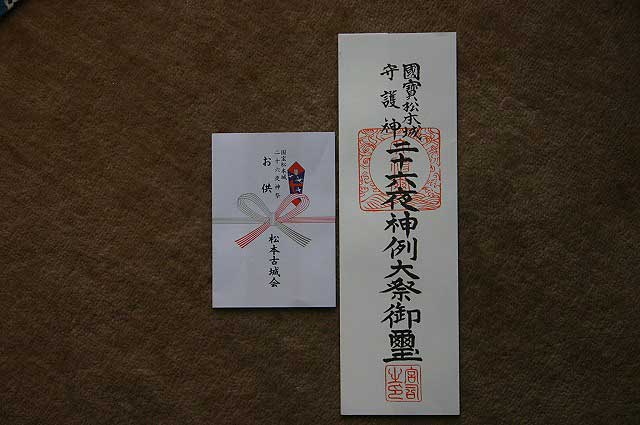 國寳松本城
守護神
二十六夜神例大祭御璽
宮司之印
国宝松本城
二十六夜神祭
お供
松本古城会